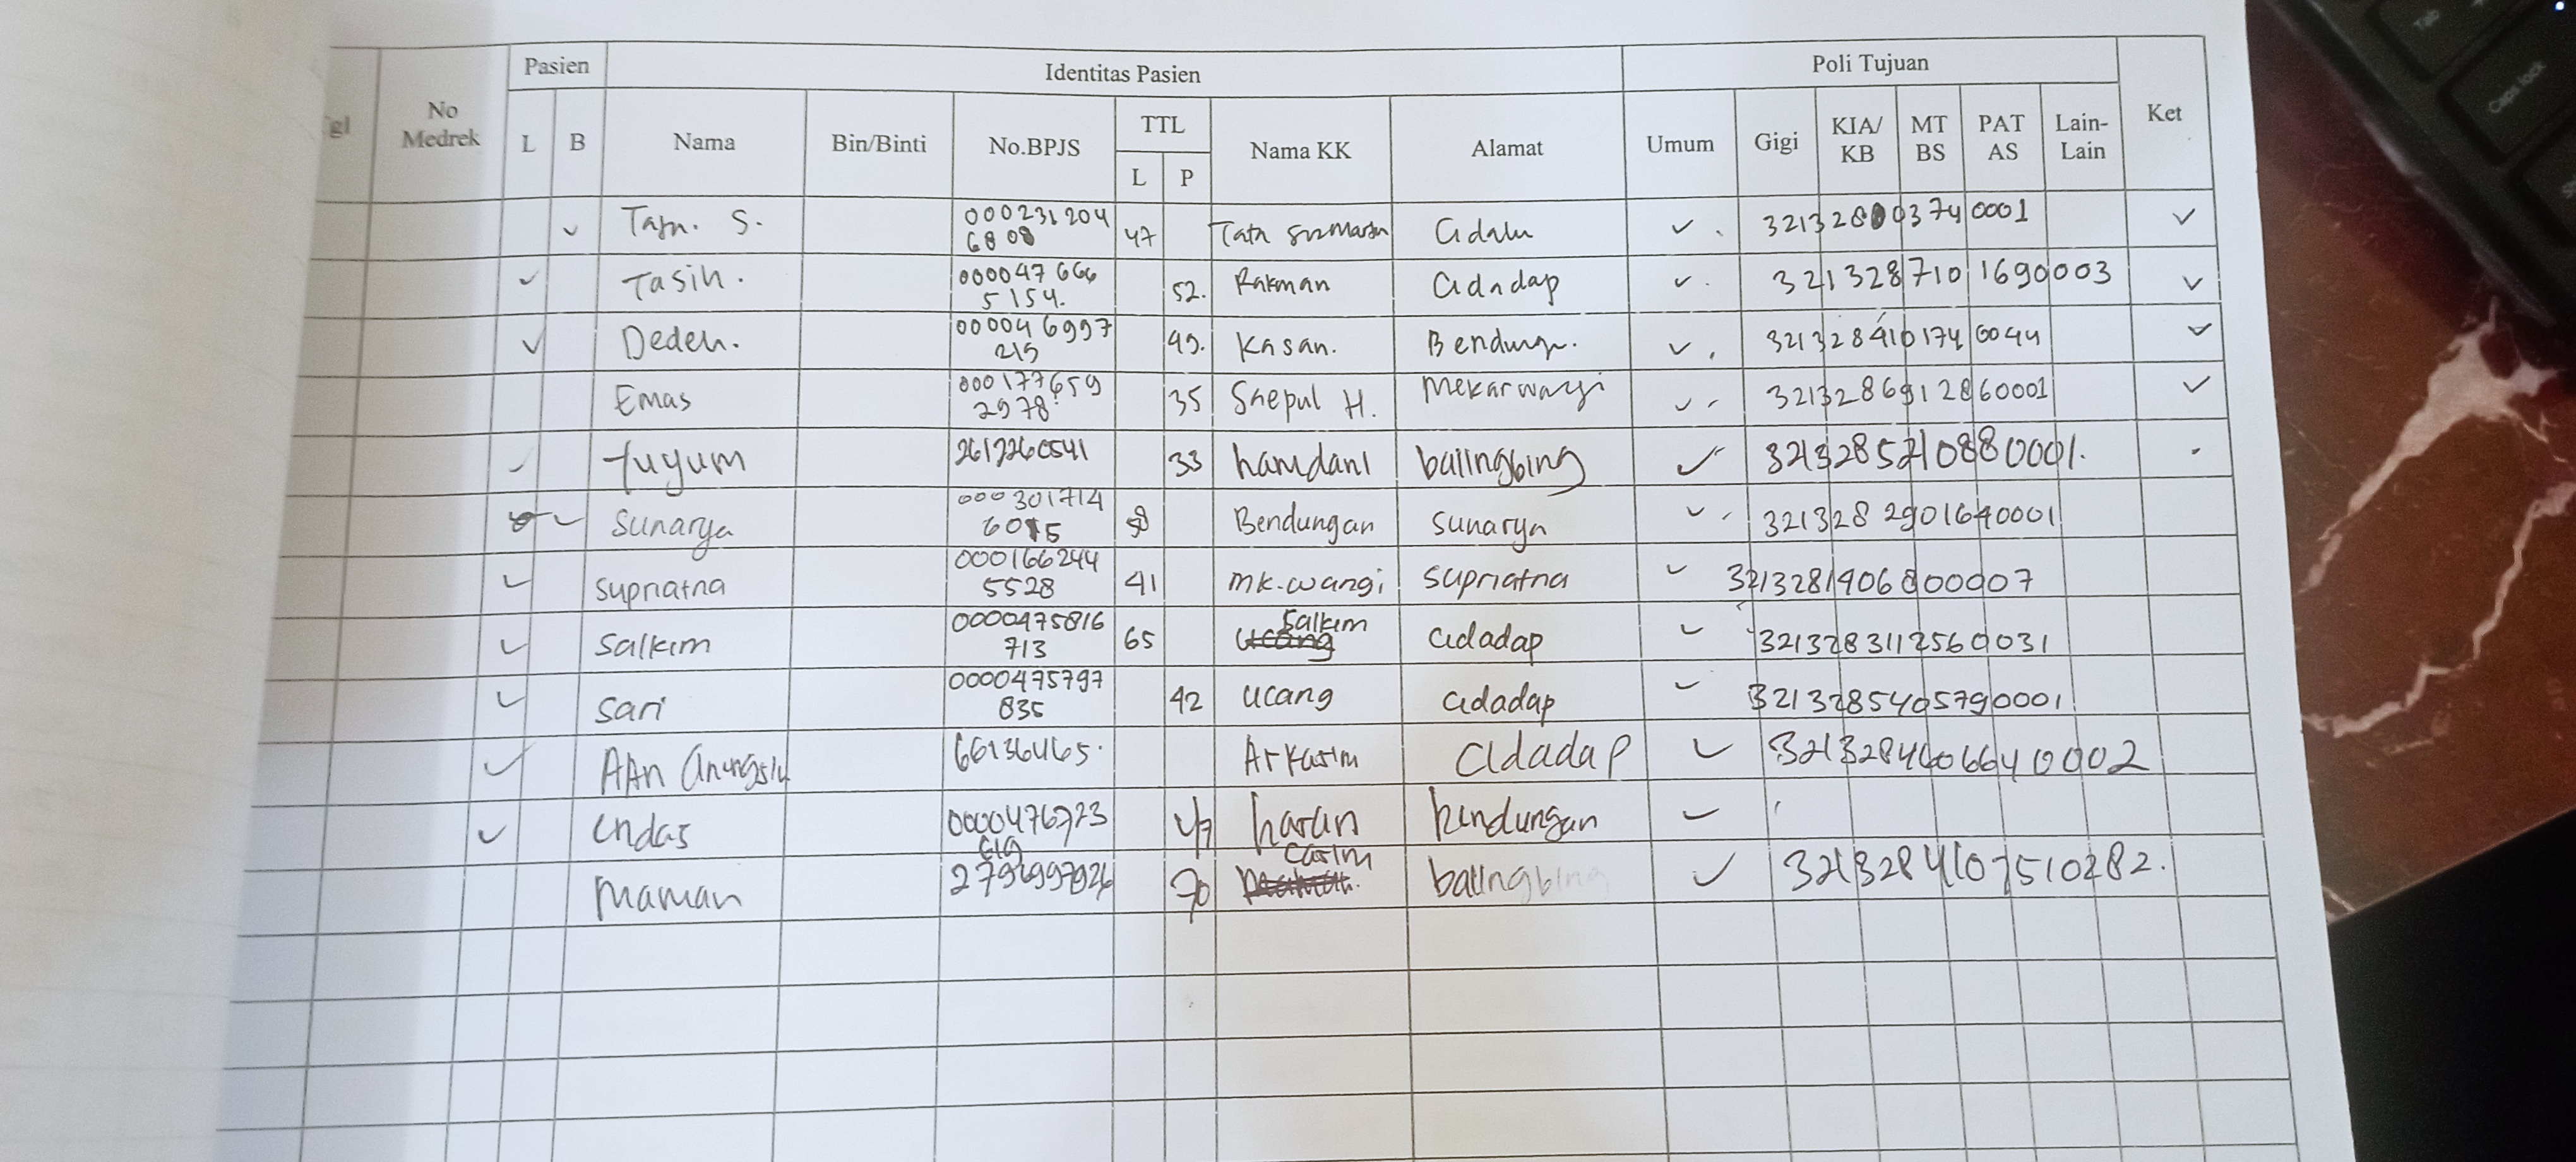 Pasien Identitas Pasien Poli Tujuan
gl No Medrek L B Nama Bin/Binti No.BPJS TTL L P Nama KK Alamat Umum Gigi KIA/ KB MT BS PAT AS Lain- Lain Ket
S. 000231204 6808 47 Tata 0001
Tasih. 000047666 5154. 52. Rakman Cidadap 3213287101690003
Dedeh. 000046997 215 49. Kasan. 3213284101740044
Emas 000177659 2978 35 Saepul H. Mekarwangi 3213286912860001
Yuyum 2612260541 33 hamdani balingbing 3213285210880001.
Sunarya 000301714 6015 58 Bendungan Sunarya 3213282901640001
Supriatna 000166244 5528 41 mk.wangi Supriatna 3213281906800007
Salkim 0000475816 713 65 Salkim Cidadap 3213283112560031
Sari 0000475797 835 42 Ucang Cidadap 3213285405790001
AAn 66136465. Arkasim Cidadap 3213284606640002
Endas 0000476723 619 47 bendungan
Maman 70 Casim balingbing 3213284107510282.